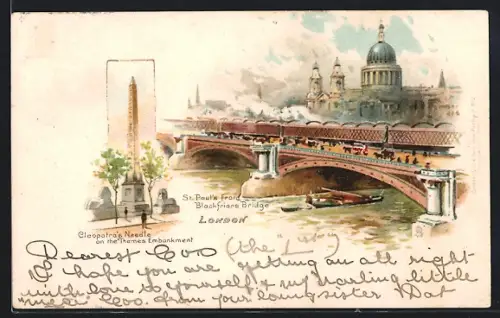 St. Paul's from
Blackfriars Bridge
LONDON
Cleopatra's Needle
on the Thames Embankment
Dearest Goo (the 1st)
I hope you are getting on all right
with love to yourself & my darling little
"niece" Goo. from your loving sister Dat